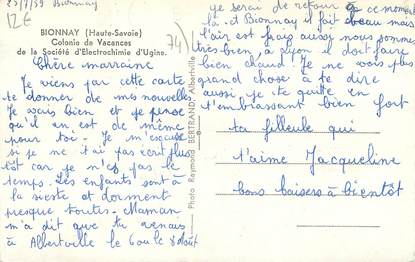 25/7/59 Bionnay
12€
74)
BIONNAY (Haute-Savoie)
Colonie de Vacances
de la Société d'Electrochimie d'Ugine.
Chère marraine
Je viens par cette carte
te donner de mes nouvelles
Je vais bien et je pense
qu'il en est de même
pour toi. Je m'excuse
si je ne t'ai pas écrit plus
tôt car je n'ai pas le
temps. Les enfants sont à
la sieste et dorment
presque toutes. Maman
m'a dit que tu venais
à Albertville le 6 ou le 8 Août
Photo Raymond BERTRAND Albertville
je serai de retour à ce moment
là. A Bionnay il fait beau mais
l'air est frais aussi nous sommes
très bien à Lyon il doit faire
bien chaud Je ne vois plus
grand chose à te dire
aussi je te quitte en
t'embrassant bien fort
ta filleule qui
t'aime Jacqueline
bons baisers à bientôt